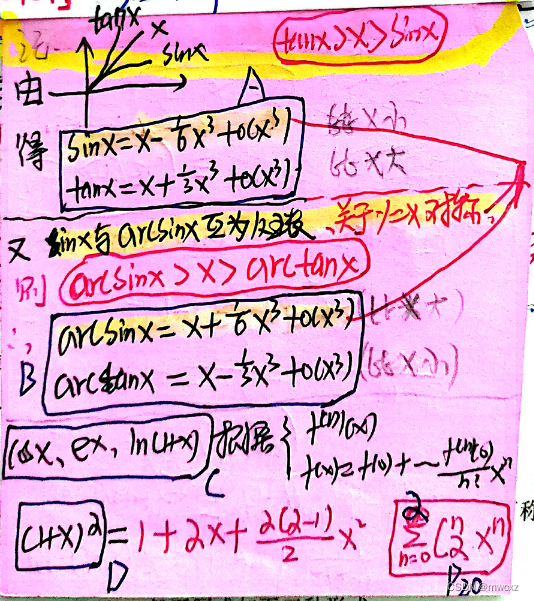 tanx
x
sinx
tanx>x>sinx
由
A
得 sinx=x-1/6x³+o(x³) 比x小
tanx=x+1/3x³+o(x³) 比x大
又 sinx与arcsinx互为反函数、关于y=x对称.
则 arcsinx>x>arctanx
∴ arcsinx=x+1/6x³+o(x³) (比x大)
B arctanx=x-1/3x³+o(x³) (比x小)
cosx, eˣ, ln(1+x) 根据 { f⁽ⁿ⁾(x)
C f(x)=f(0)+~f⁽ⁿ⁾(0)/n! xⁿ
(1+x)²=1+2x+2(2-1)/2 x² 2∑n=0 C₂ⁿ·xⁿ
D P20
CSDN @mwcxz